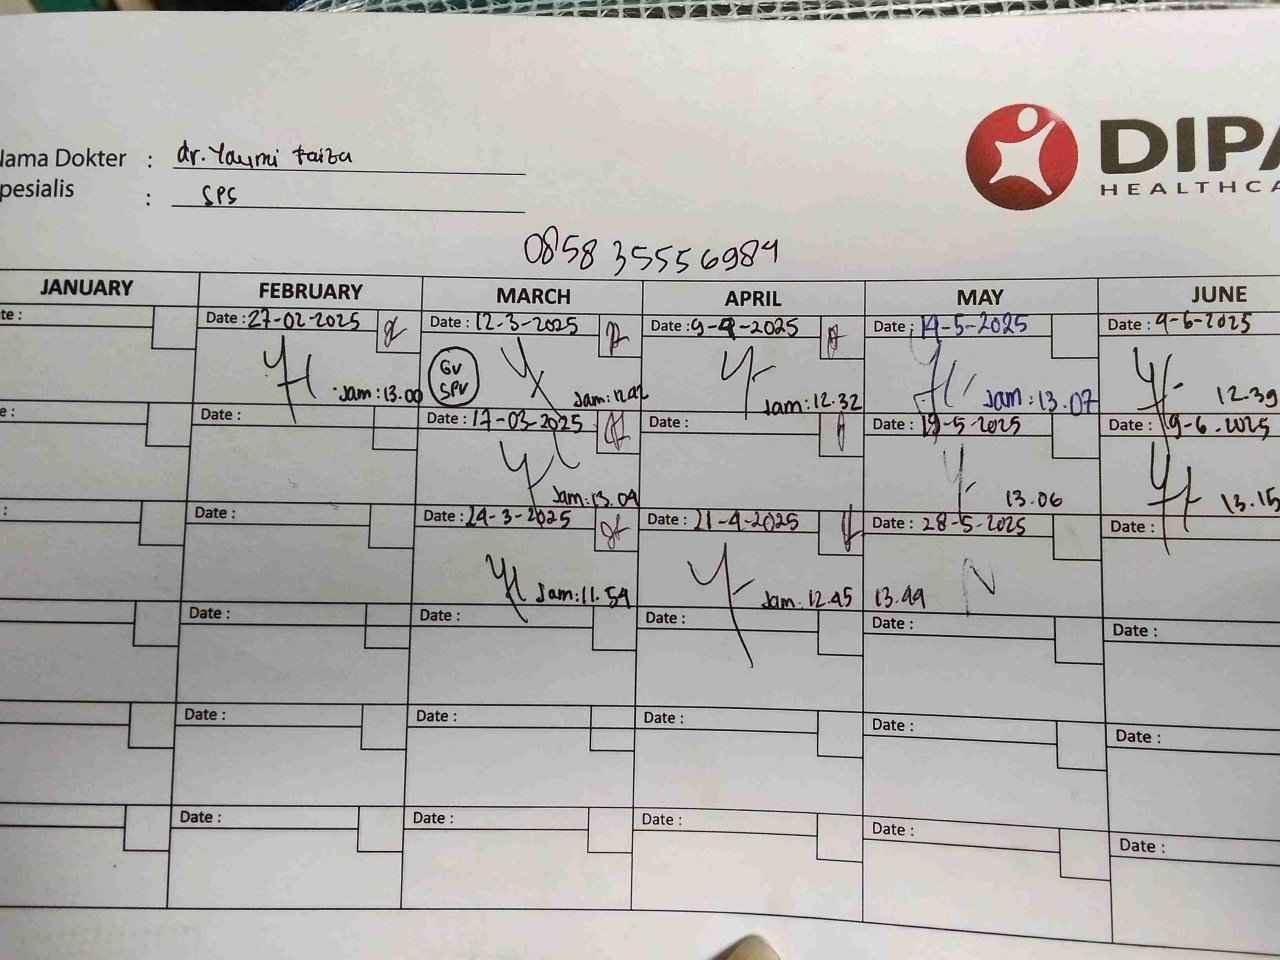 Nama Dokter : dr. Yaumi Faiza
pesialis : SPS
DIPA
HEALTHCA
0858 35556984
JANUARY FEBRUARY MARCH APRIL MAY JUNE
te: Date : 27-02-2025 Date : 12-3-2025 Date : 9-4-2025 Date : 14-5-2025 Date : 9-6-2025
GV
SPV
Jam : 13.00 Jam : 12.02 Jam : 12.32 Jam : 13.07 12.39
e: Date : Date : 17-03-2025 Date : Date : 19-5-2025 Date : 9-6-2025
Jam : 13.04 13.06 13.15
: Date : Date : 24-3-2025 Date : 21-4-2025 Date : 28-5-2025 Date :
Jam : 11.54 Jam : 12.45 13.44
Date : Date : Date : Date : Date :
Date : Date : Date : Date : Date :
Date : Date : Date : Date : Date :